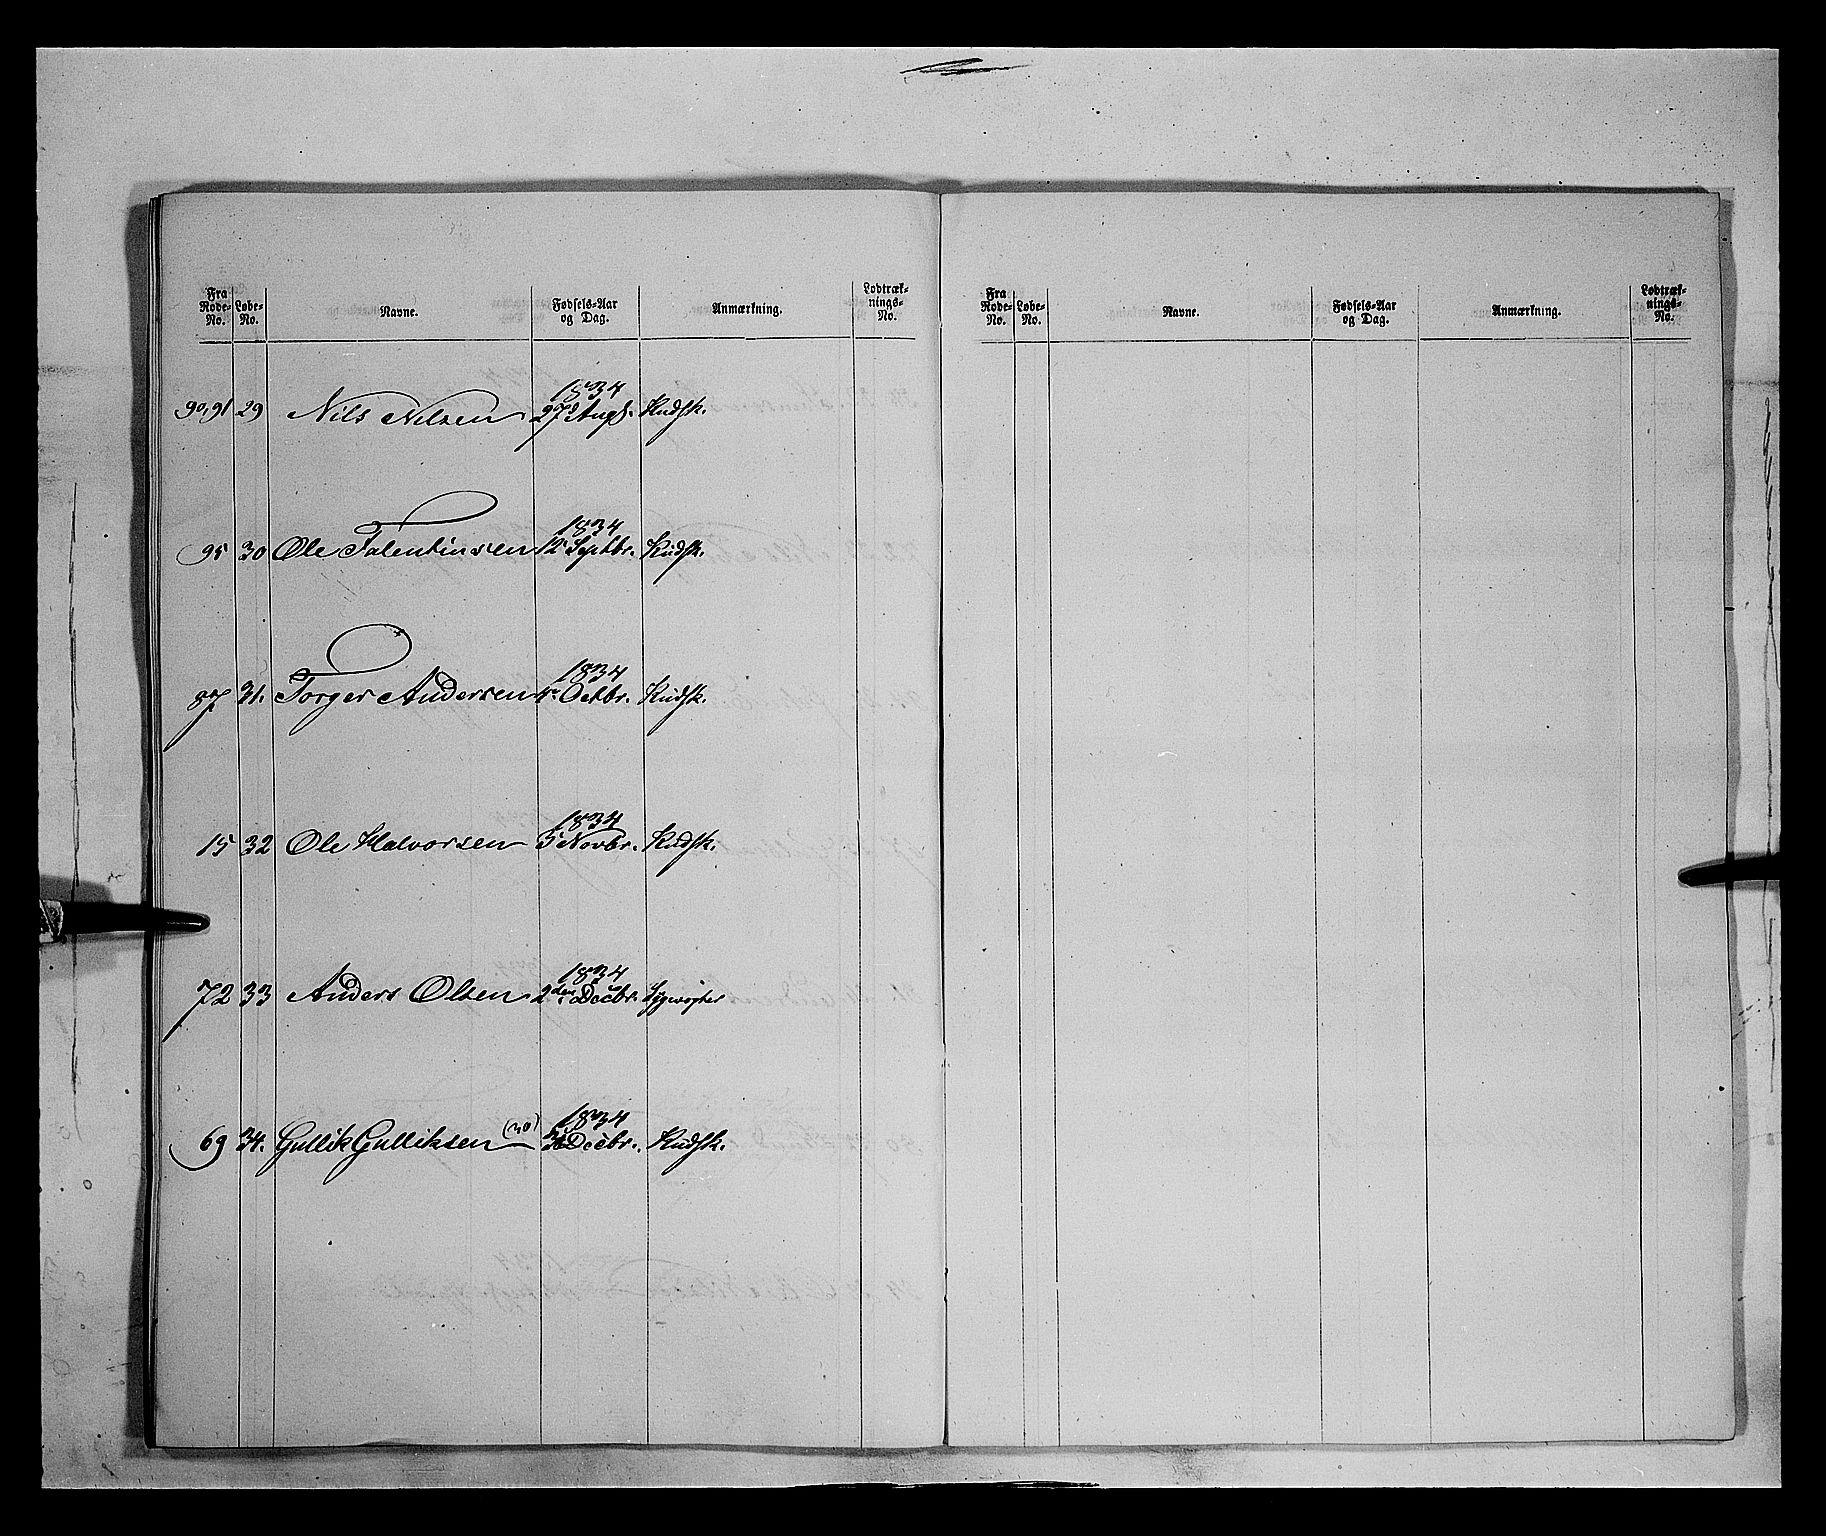 Fra Rode-No. Løbe-No. Navne. Fødsels-Aar og Dag. Anmærkning. Lodtræk-nings-No.
Fra Rode-No. Løbe-No. Navne. Fødsels-Aar og Dag. Anmærkning. Lodtræk-nings-No.
1834
90,91 29 Nils Nilsen 27d Augs. Kudsk.
1834
95 30 Ole Falentinsen 12 Septbr. Kudsk.
1834
87 31. Torger Andersen 4 Octbr. Kudsk.
1834
15 32 Ole Halvorsen 5 Novbr. Kudsk.
1834
72 33 Anders Olsen 2den Decbr.
1834
69 34. Gullik Gulliksen (30) Decbr. Kudsk.